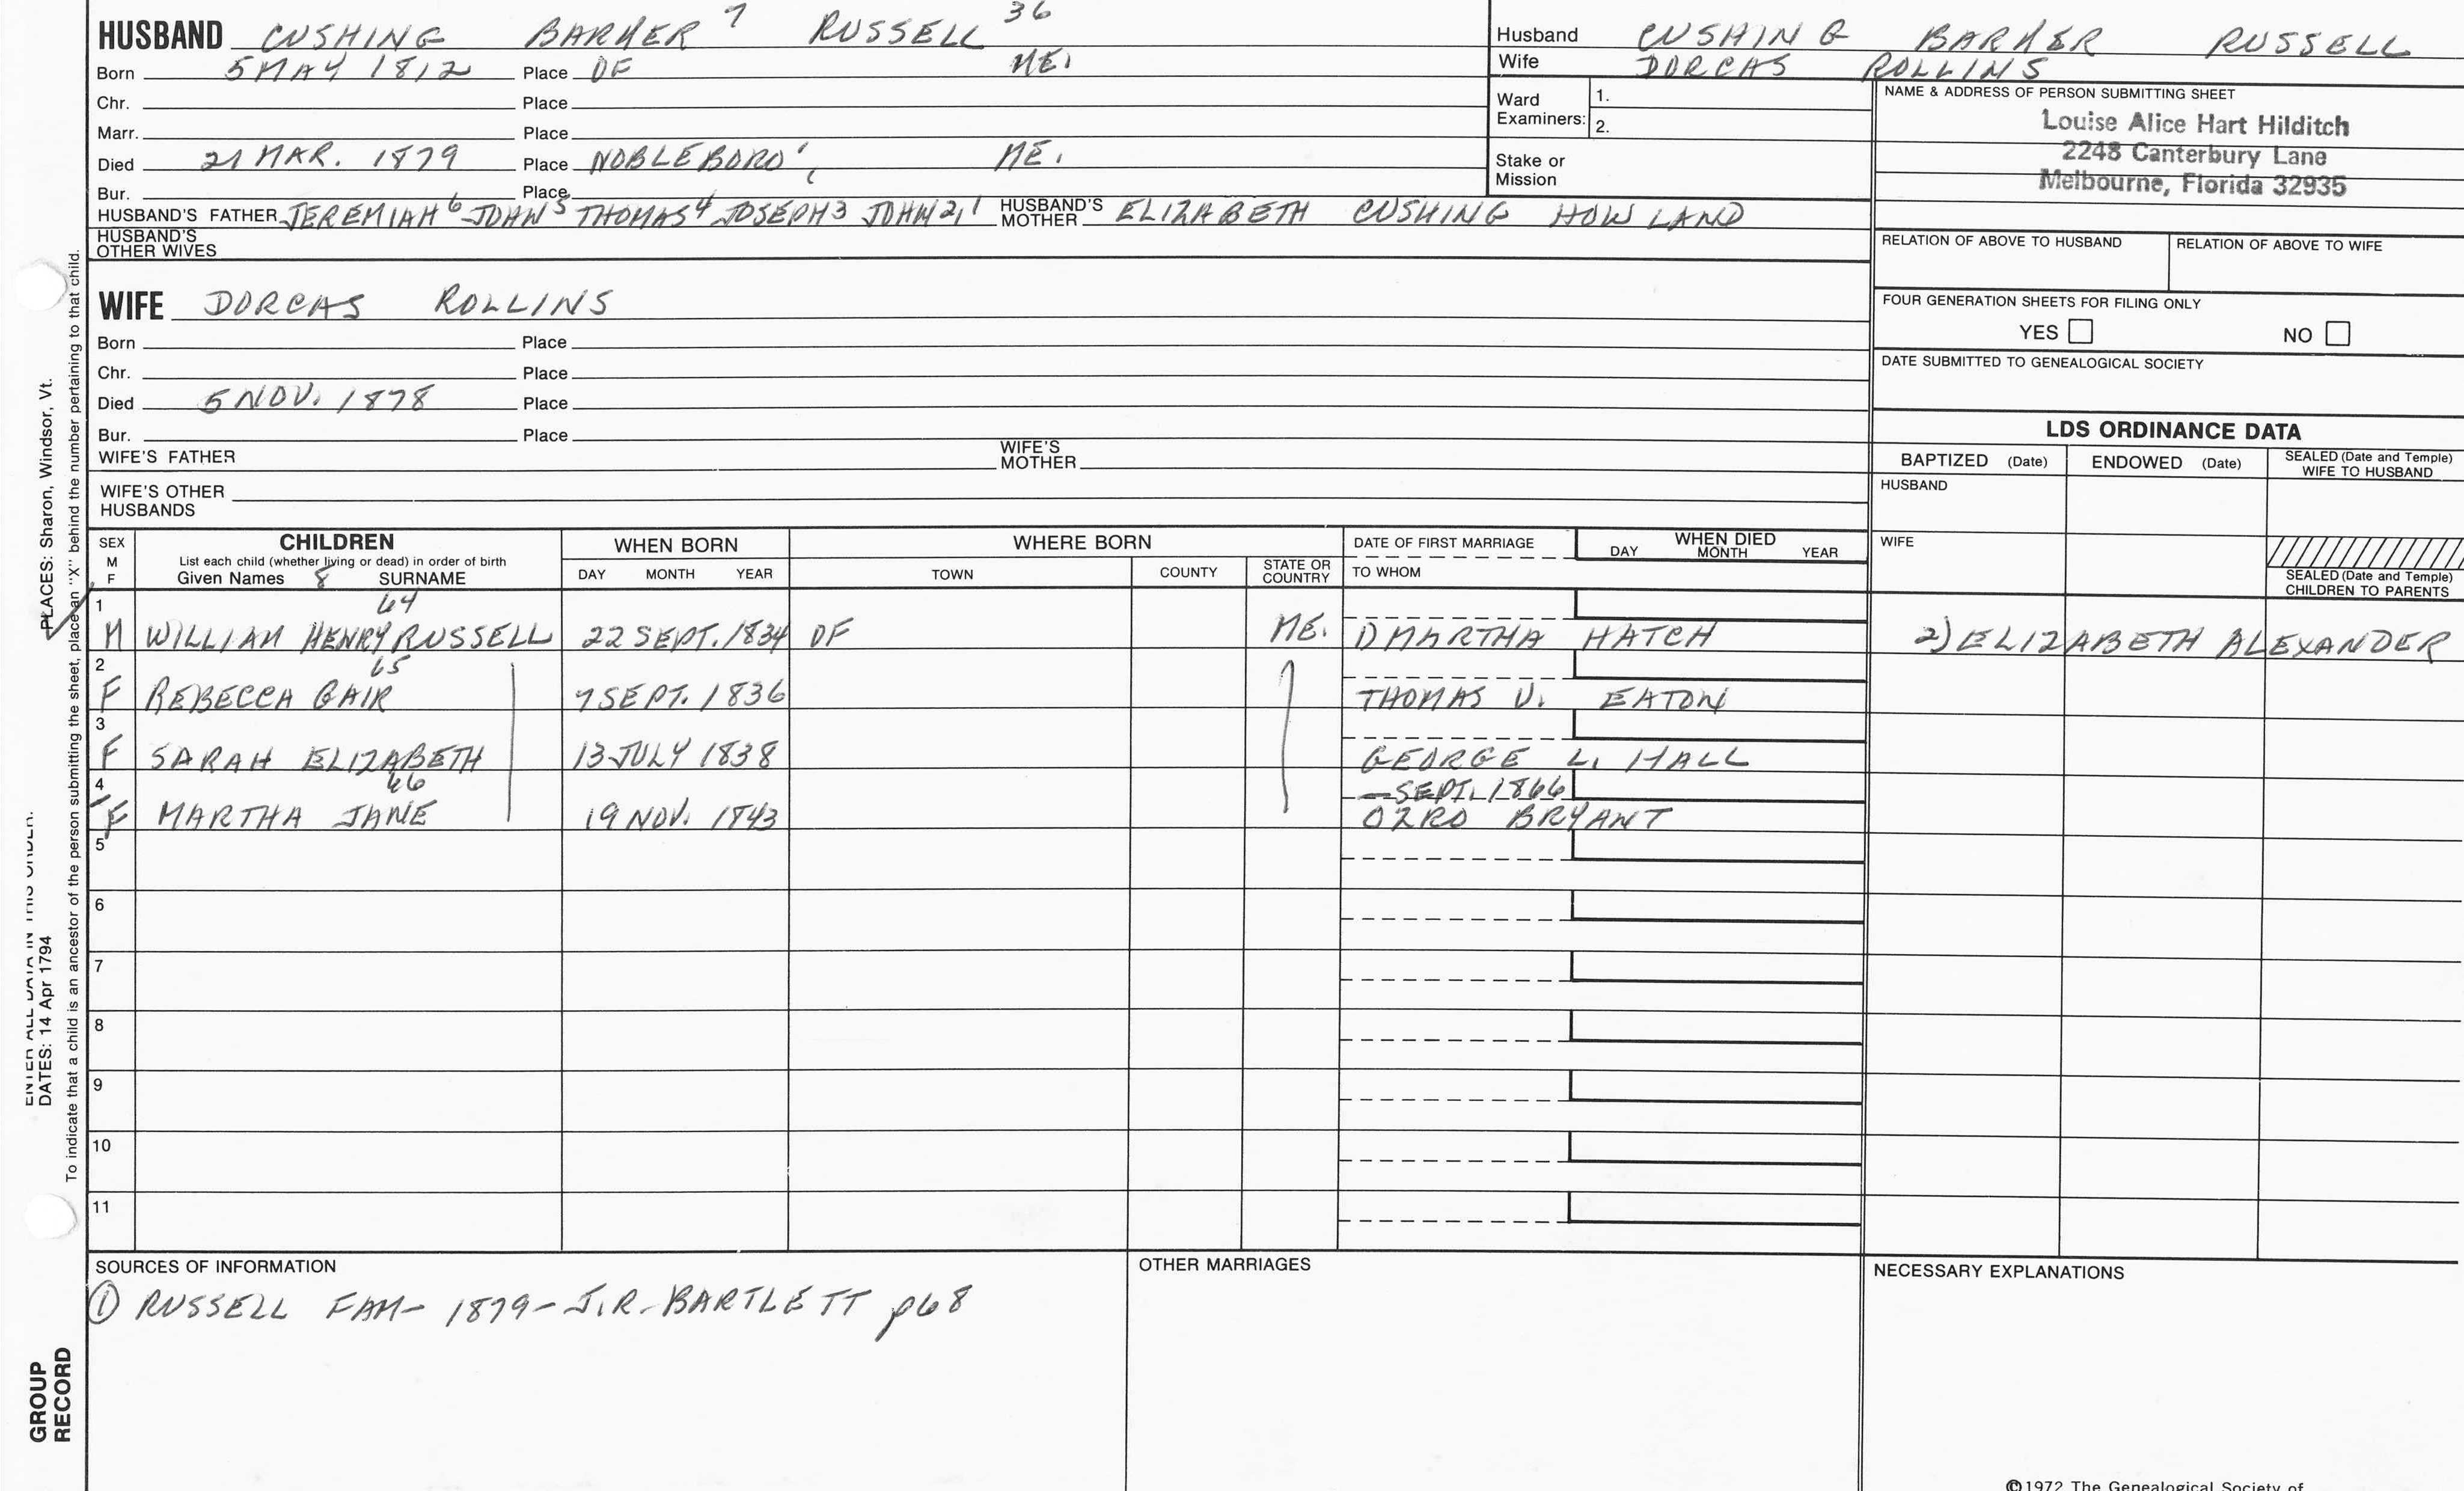 HUSBAND CUSHING BARKER 7 RUSSELL 36
Born 5 MAY 1812 Place OF ME.
Chr. Place
Marr. Place
Died 21 MAR. 1879 Place NOBLEBORO', ME.
Bur. Place
HUSBAND'S FATHER JEREMIAH 6 JOHN 5 THOMAS 4 JOSEPH 3 JOHN 2,1 HUSBAND'S MOTHER ELIZABETH CUSHING HOWLAND
HUSBAND'S OTHER WIVES
WIFE DORCAS ROLLINS
Born Place
Chr. Place
Died 5 NOV. 1878 Place
Bur. Place
WIFE'S FATHER WIFE'S MOTHER
WIFE'S OTHER HUSBANDS
Husband CUSHING BARKER RUSSELL
Wife DORCAS ROLLINS
Ward Examiners: 1.
2.
Stake or Mission
NAME & ADDRESS OF PERSON SUBMITTING SHEET
Louise Alice Hart Hilditch
2248 Canterbury Lane
Melbourne, Florida 32935
RELATION OF ABOVE TO HUSBAND RELATION OF ABOVE TO WIFE
FOUR GENERATION SHEETS FOR FILING ONLY
YES NO
DATE SUBMITTED TO GENEALOGICAL SOCIETY
LDS ORDINANCE DATA
BAPTIZED (Date) ENDOWED (Date) SEALED (Date and Temple) WIFE TO HUSBAND
HUSBAND
WIFE
SEALED (Date and Temple) CHILDREN TO PARENTS
SEX M F
CHILDREN
List each child (whether living or dead) in order of birth
Given Names 8 SURNAME
WHEN BORN
DAY MONTH YEAR
WHERE BORN
TOWN COUNTY STATE OR COUNTRY
DATE OF FIRST MARRIAGE
TO WHOM
WHEN DIED
DAY MONTH YEAR
1 64
M WILLIAM HENRY RUSSELL 22 SEPT. 1834 OF ME. 1) MARTHA HATCH 2) ELIZABETH ALEXANDER
2 65
F REBECCA GAIR 7 SEPT. 1836 THOMAS V. EATON
3
F SARAH ELIZABETH 13 JULY 1838 GEORGE L. HALL
4 66 — SEPT. 1866
F MARTHA JANE 19 NOV. 1843 OZRO BRYANT
5
6
7
8
9
10
11
SOURCES OF INFORMATION
① RUSSELL FAM- 1879- J.R. BARTLETT p68
OTHER MARRIAGES
NECESSARY EXPLANATIONS
©1972 The Genealogical Society of
PLACES: Sharon, Windsor, Vt.
To indicate that a child is an ancestor of the person submitting the sheet, place an "X" behind the number pertaining to that child.
ENTER ALL DATA IN THIS ORDER:
DATES: 14 Apr 1794
GROUP
RECORD